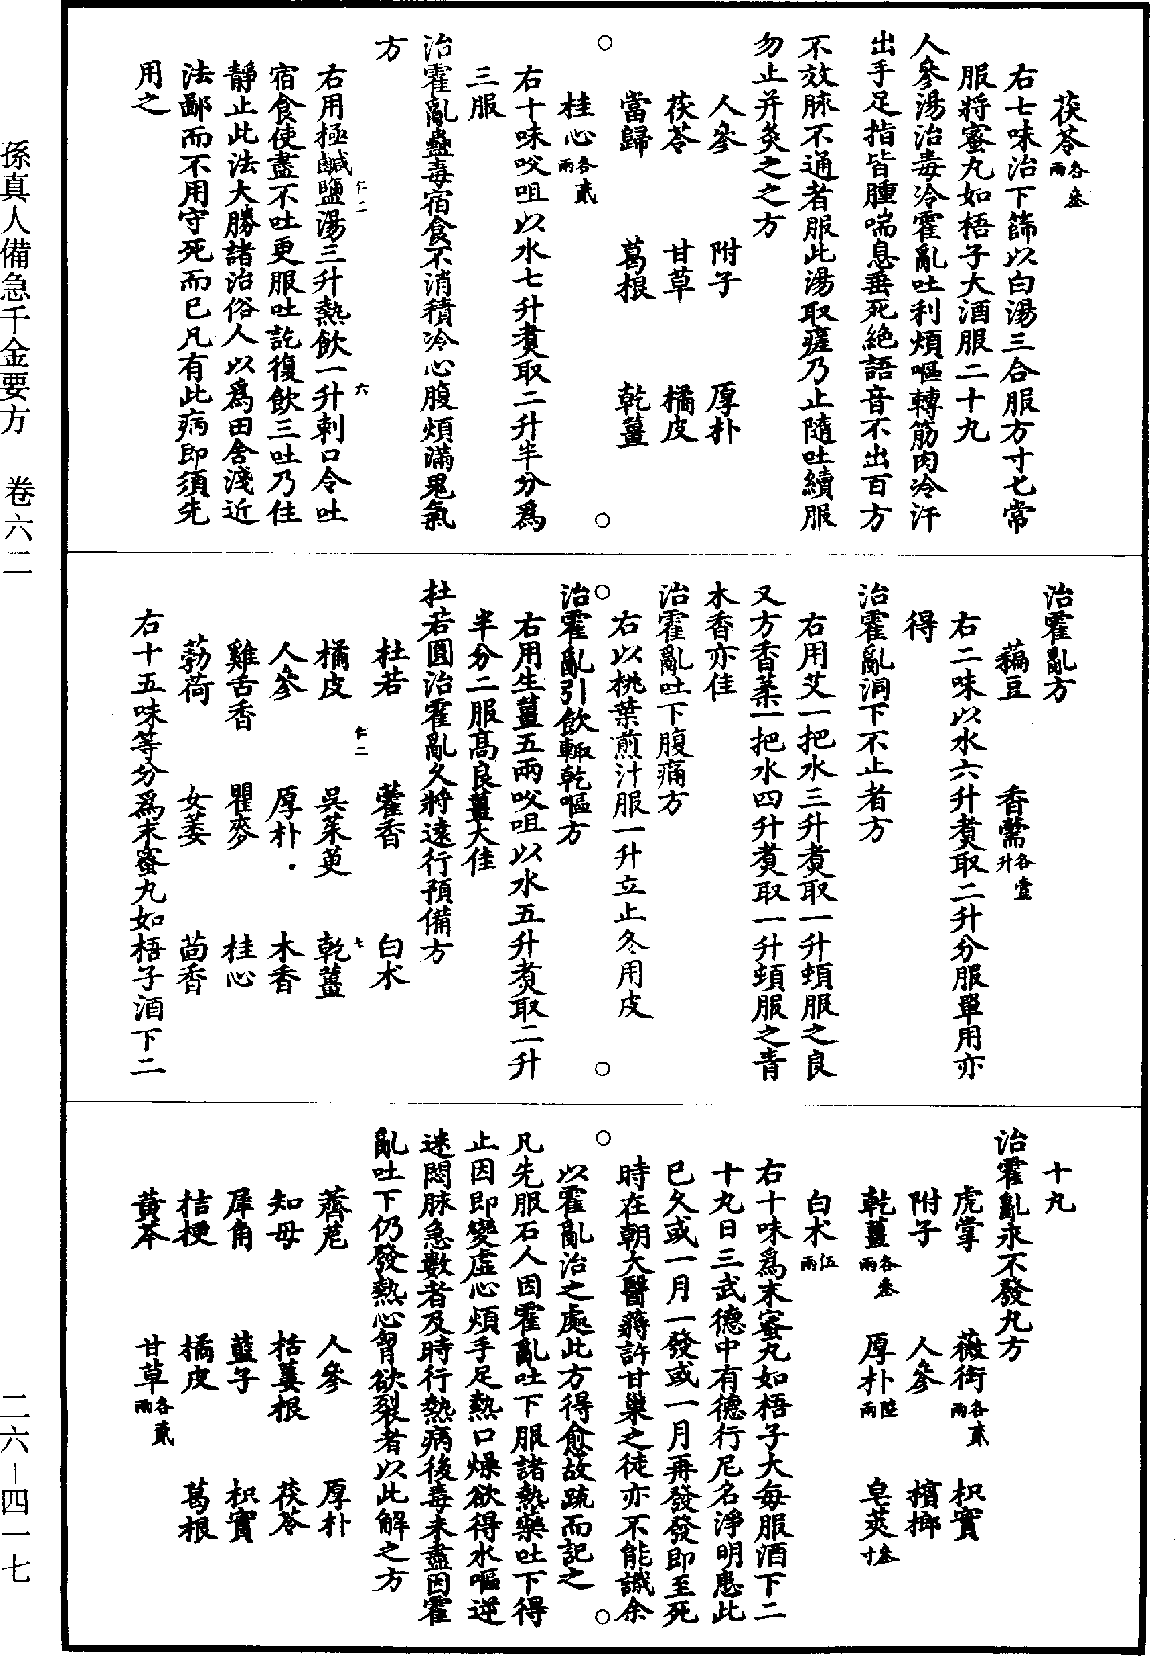 茯苓各叁兩
右七味治下篩以白湯三合服方寸匕常
服將蜜丸如梧子大酒服二十丸
人參湯治毒冷霍亂吐利煩嘔轉筋肉冷汗
出手足指皆腫喘息垂死絕語音不出百方
不效脉不通者服此湯取瘥乃止隨吐續服
勿止并灸之之方
人參 附子 厚朴
茯苓 甘草 橘皮
當歸 葛根 乾薑
桂心各貳兩
右十味㕮咀以水七升煑取二升半分爲
三服
治霍亂蠱毒宿食不消積冷心腹煩滿鬼氣
方
右用極鹹鹽湯三升熱飲一升刺口令吐
宿食使盡不吐更服吐訖復飲三吐乃住
靜止此法大勝諸治俗人以爲田舍淺近
法鄙而不用守死而已凡有此病即須先
用之
仁二
六
治霍亂方
藊豆 香薷各壹升
右二味以水六升煑取二升分服單用亦
得
治霍亂洞下不止者方
右用艾一把水三升煑取一升頓服之良
又方香葇一把水四升煑取一升頓服之青
木香亦佳
治霍亂吐下腹痛方
右以桃葉煎汁服一升立止冬用皮
治霍亂引飲輒乾嘔方
右用生薑五兩㕮咀以水五升煑取二升
半分二服高良薑大佳
杜若圓治霍亂久將遠行預備方
杜若 藿香 白术
仁二
七
橘皮 吳茱萸 乾薑
人參 厚朴 木香
雞舌香 瞿麥 桂心
薄荷 女萎 茴香
右十五味等分爲末蜜丸如梧子酒下二
十丸
治霍亂永不發丸方
虎掌 薇銜各貳兩 枳實
附子 人參 檳榔
乾薑各叁兩 厚朴陸兩 皂莢叁寸
白术伍兩
右十味爲末蜜丸如梧子大每服酒下二
十丸日三武德中有德行尼名淨明患此
已久或一月一發或一月再發發即至死
時在朝大醫蔣許甘巢之徒亦不能識余
以霍亂治之處此方得愈故疏而記之
凡先服石人因霍亂吐下服諸熱藥吐下得
止因即變虛心煩手足熱口燥欲得水嘔逆
迷悶脉急數者及時行熱病後毒未盡因霍
亂吐下仍發熱心胷欲裂者以此解之方
薺苨 人參 厚朴
知母 栝蔞根 茯苓
犀角 藍子 枳實
桔梗 橘皮 葛根
黄芩 甘草各貳兩
孫真人備急千金要方 卷六二
二六—四一七